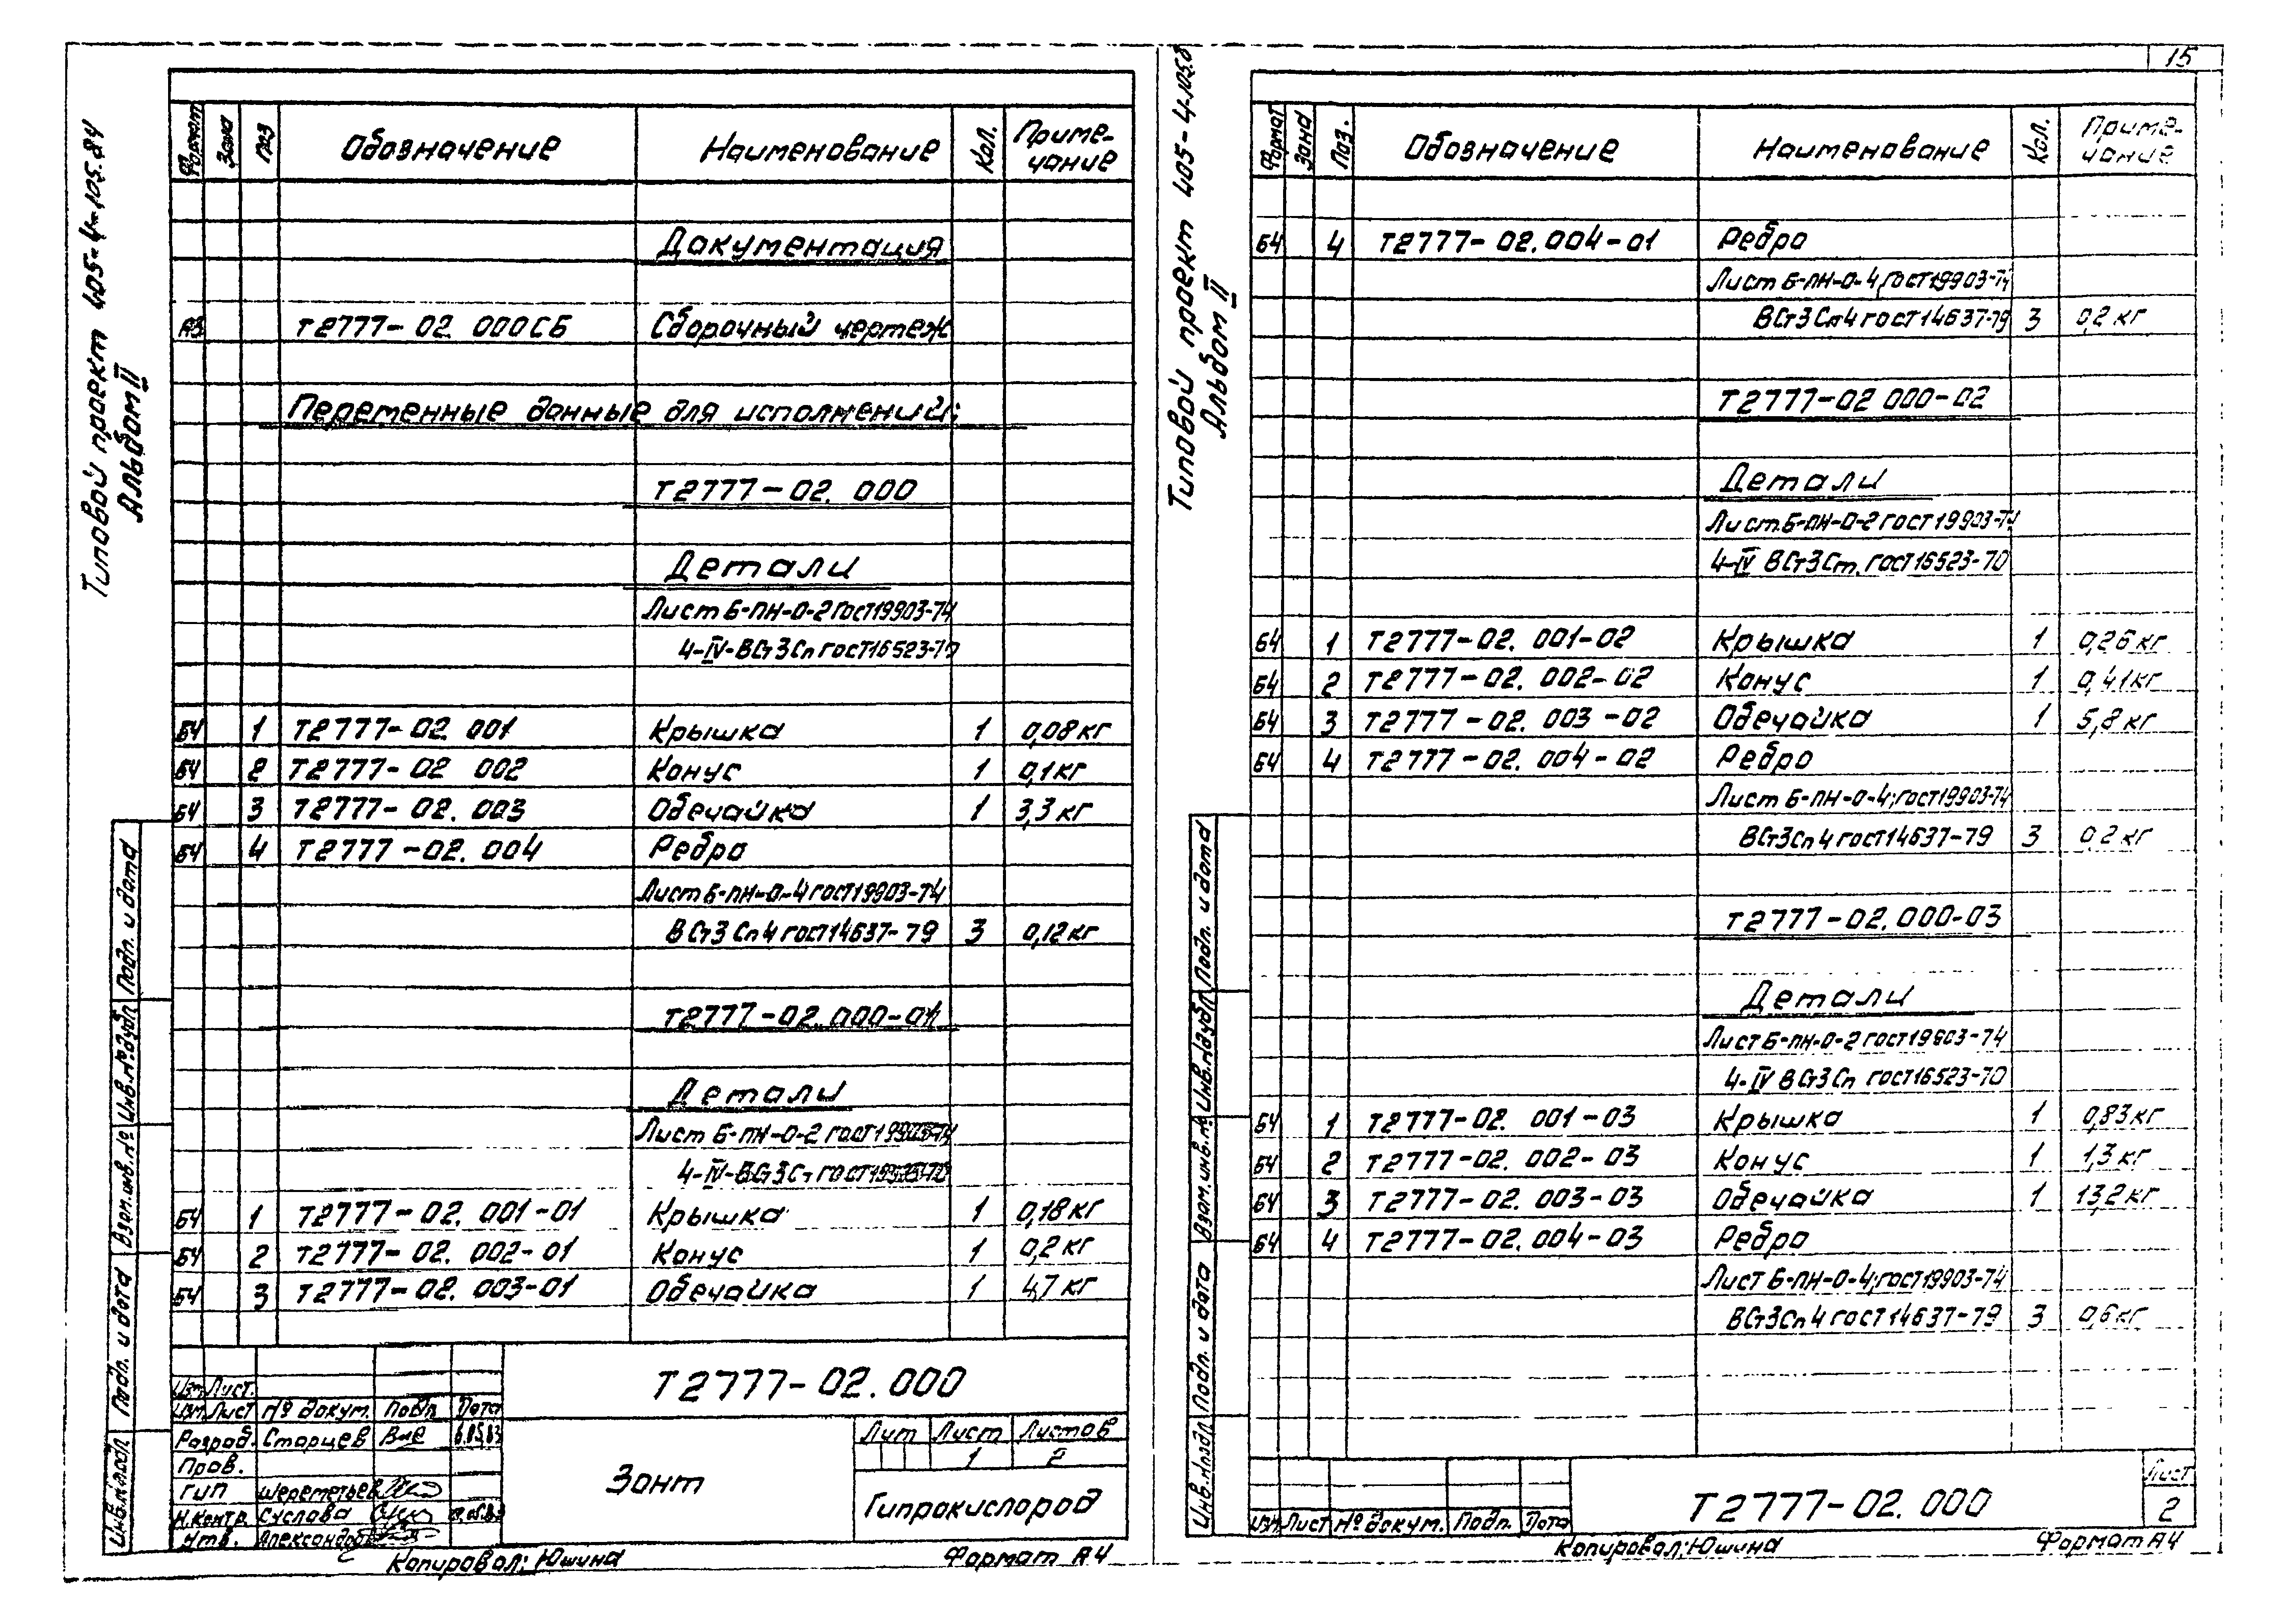 15
Типовой проект 405-4-105.84
Альбом II
Формат Зона Поз Обозначение Наименование Кол. Приме-
чание
Документация
А3 Т2777-02.000СБ Сборочный чертеж
Переменные данные для исполнений:
Т2777-02.000
Детали
Лист Б-ПН-О-2 ГОСТ 19903-74
4-IV-ВСт3Сп ГОСТ 16523-70
БЧ 1 Т2777-02.001 Крышка 1 0,08кг
БЧ 2 Т2777-02 002 Конус 1 0,1кг
БЧ 3 Т2777-02.003 Обечайка 1 3,3кг
БЧ 4 Т2777-02.004 Ребро
Лист Б-ПН-О-4 ГОСТ 19903-74
ВСт3Сп4 ГОСТ 14637-79 3 0,12кг
Т2777-02.000-01
Детали
Лист Б-ПН-О-2 ГОСТ 19903-74
4-IV-ВСт3Ст ГОСТ
БЧ 1 Т2777-02.001-01 Крышка 1 0,18кг
БЧ 2 Т2777-02.002-01 Конус 1 0,2кг
БЧ 3 Т2777-02.003-01 Обечайка 1 4,7кг
Инв.№подл Подп. и дата Взам.инв.№ Инв.№дубл Подп. и дата
Изм Лист.
Изм Лист № докум. Подп Дата
Разраб. Старцев
Пров.
ГИП Шереметьев
Н.контр. Суслова
Утв. Александров
Т2777-02.000
Зонт
Лит Лист Листов
1 2
Гипрокислород
Копировал: Юшина Формат А4
Типовой проект 405-4-105.8
Альбом II
Формат Зона Поз. Обозначение Наименование Кол. Приме-
чание
БЧ 4 Т2777-02.004-01 Ребро
Лист Б-ПН-О-4 ГОСТ 19903-74
ВСт3Сп4 ГОСТ 14637-79 3 0,2кг
Т2777-02 000-02
Детали
Лист Б-ПН-О-2 ГОСТ 19903-74
4-IV ВСт3Ст. ГОСТ 16523-70
БЧ 1 Т2777-02.001-02 Крышка 1 0,26кг
БЧ 2 Т2777-02.002-02 Конус 1 0,41кг
БЧ 3 Т2777-02.003-02 Обечайка 1 5,8кг
БЧ 4 Т2777-02.004-02 Ребро
Лист Б-ПН-О-4; ГОСТ 19903-74
ВСт3Сп4 ГОСТ 14637-79 3 0,2кг
Т2777-02.000-03
Детали
Лист Б-ПН-О-2 ГОСТ 19903-74
4-IV ВСт3Сп ГОСТ 16523-70
БЧ 1 Т2777-02.001-03 Крышка 1 0,83кг
БЧ 2 Т2777-02.002-03 Конус 1 1,3кг
БЧ 3 Т2777-02.003-03 Обечайка 1 13,2кг
БЧ 4 Т2777-02.004-03 Ребро
Лист Б-ПН-О-4; ГОСТ 19903-74
ВСт3Сп4 ГОСТ 14637-79 3 0,6кг
Инв.№подл Подп. и дата Взам.инв.№ Инв.№дубл Подп. и дата
Изм Лист № докум. Подп. Дата
Т2777-02.000
Лист
2
Копировал: Юшина Формат А4